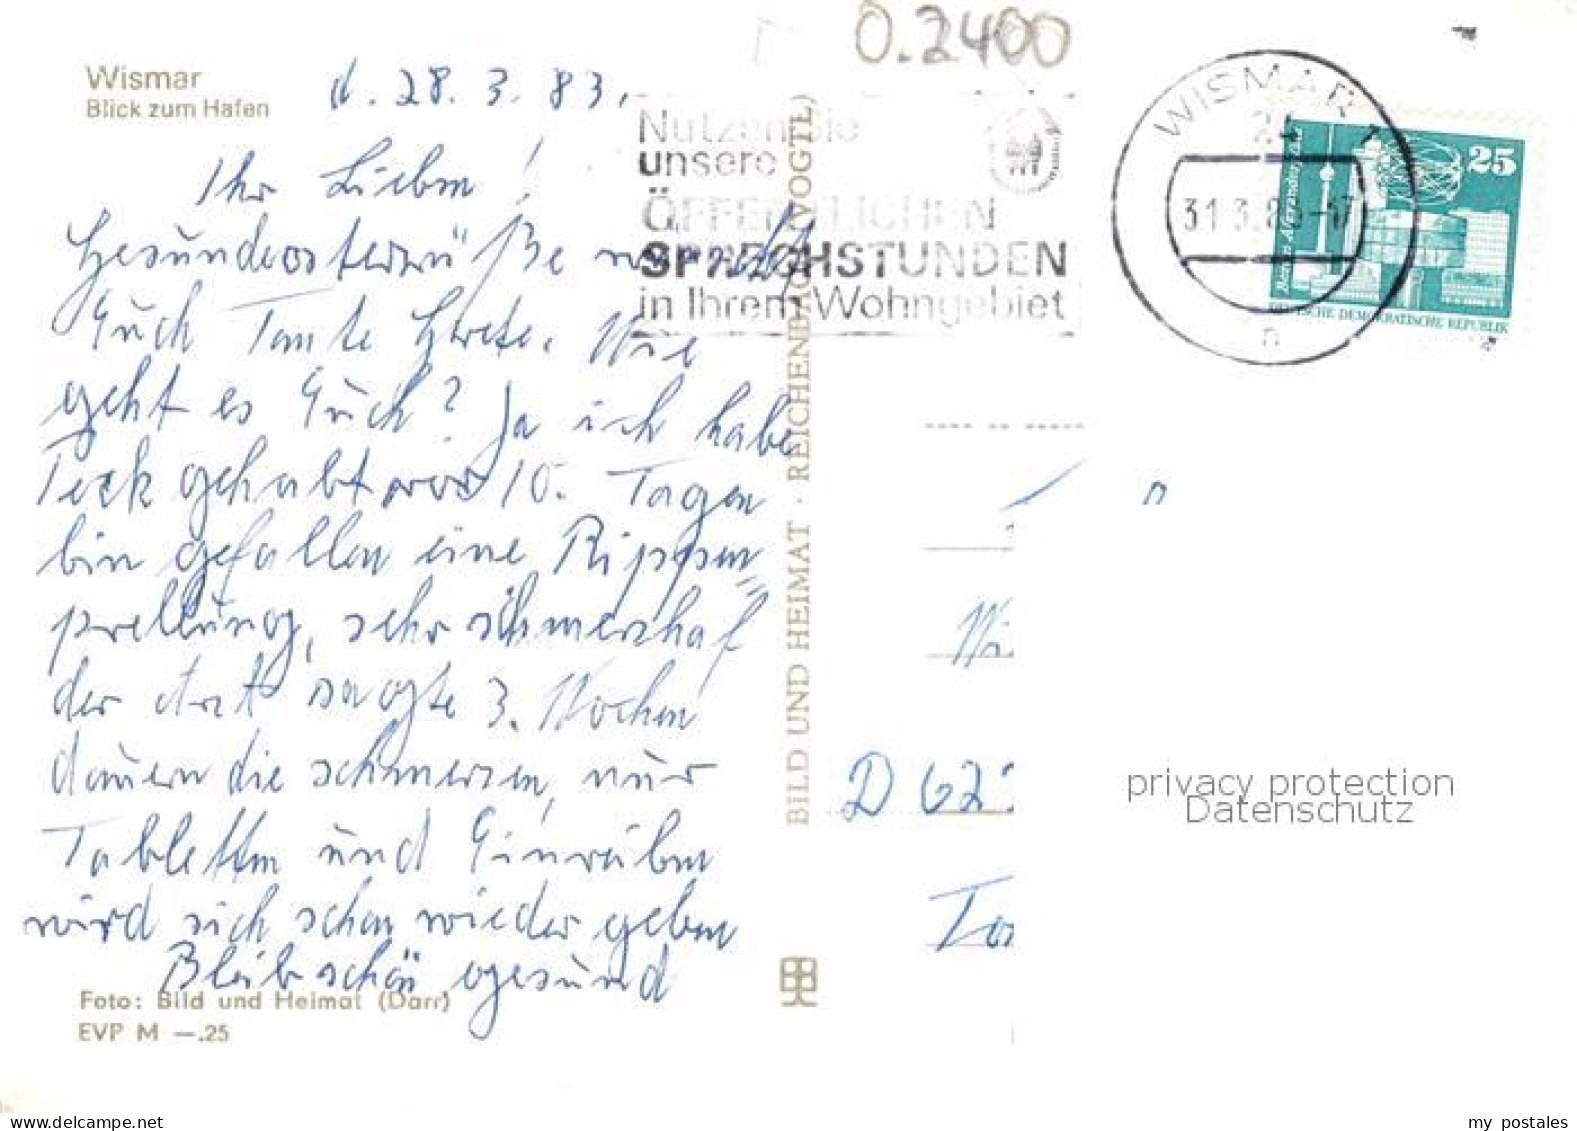 O.2400
Wismar
Blick zum Hafen
d. 28. 3. 83.
Ihr Lieben!
Gesundeostergrüße wünscht
Euch Tante Grete. Wie
geht es Euch? Ja ich habe
Peck gehabt vor 10. Tagen
bin gefallen eine Rippen=
prellung, sehr schmerzhaf
der Arzt sagte 3. Wochen
dauern die schmerzen, nur
Tabletten und Einreiben
wird sich schon wieder geben
Bleib schön gesund
Foto: Bild und Heimat (Darr)
EVP M —.25
BILD UND HEIMAT · REICHENBACH (VOGTL)
Nutzen Sie
unsere
ÖFFENTLICHEN
SPRECHSTUNDEN
in Ihrem Wohngebiet
WISMAR 1
24
31.3.83-17
n
25
Berlin, Alexanderplatz
DEUTSCHE DEMOKRATISCHE REPUBLIK
D 62
privacy protection
Datenschutz
my postales